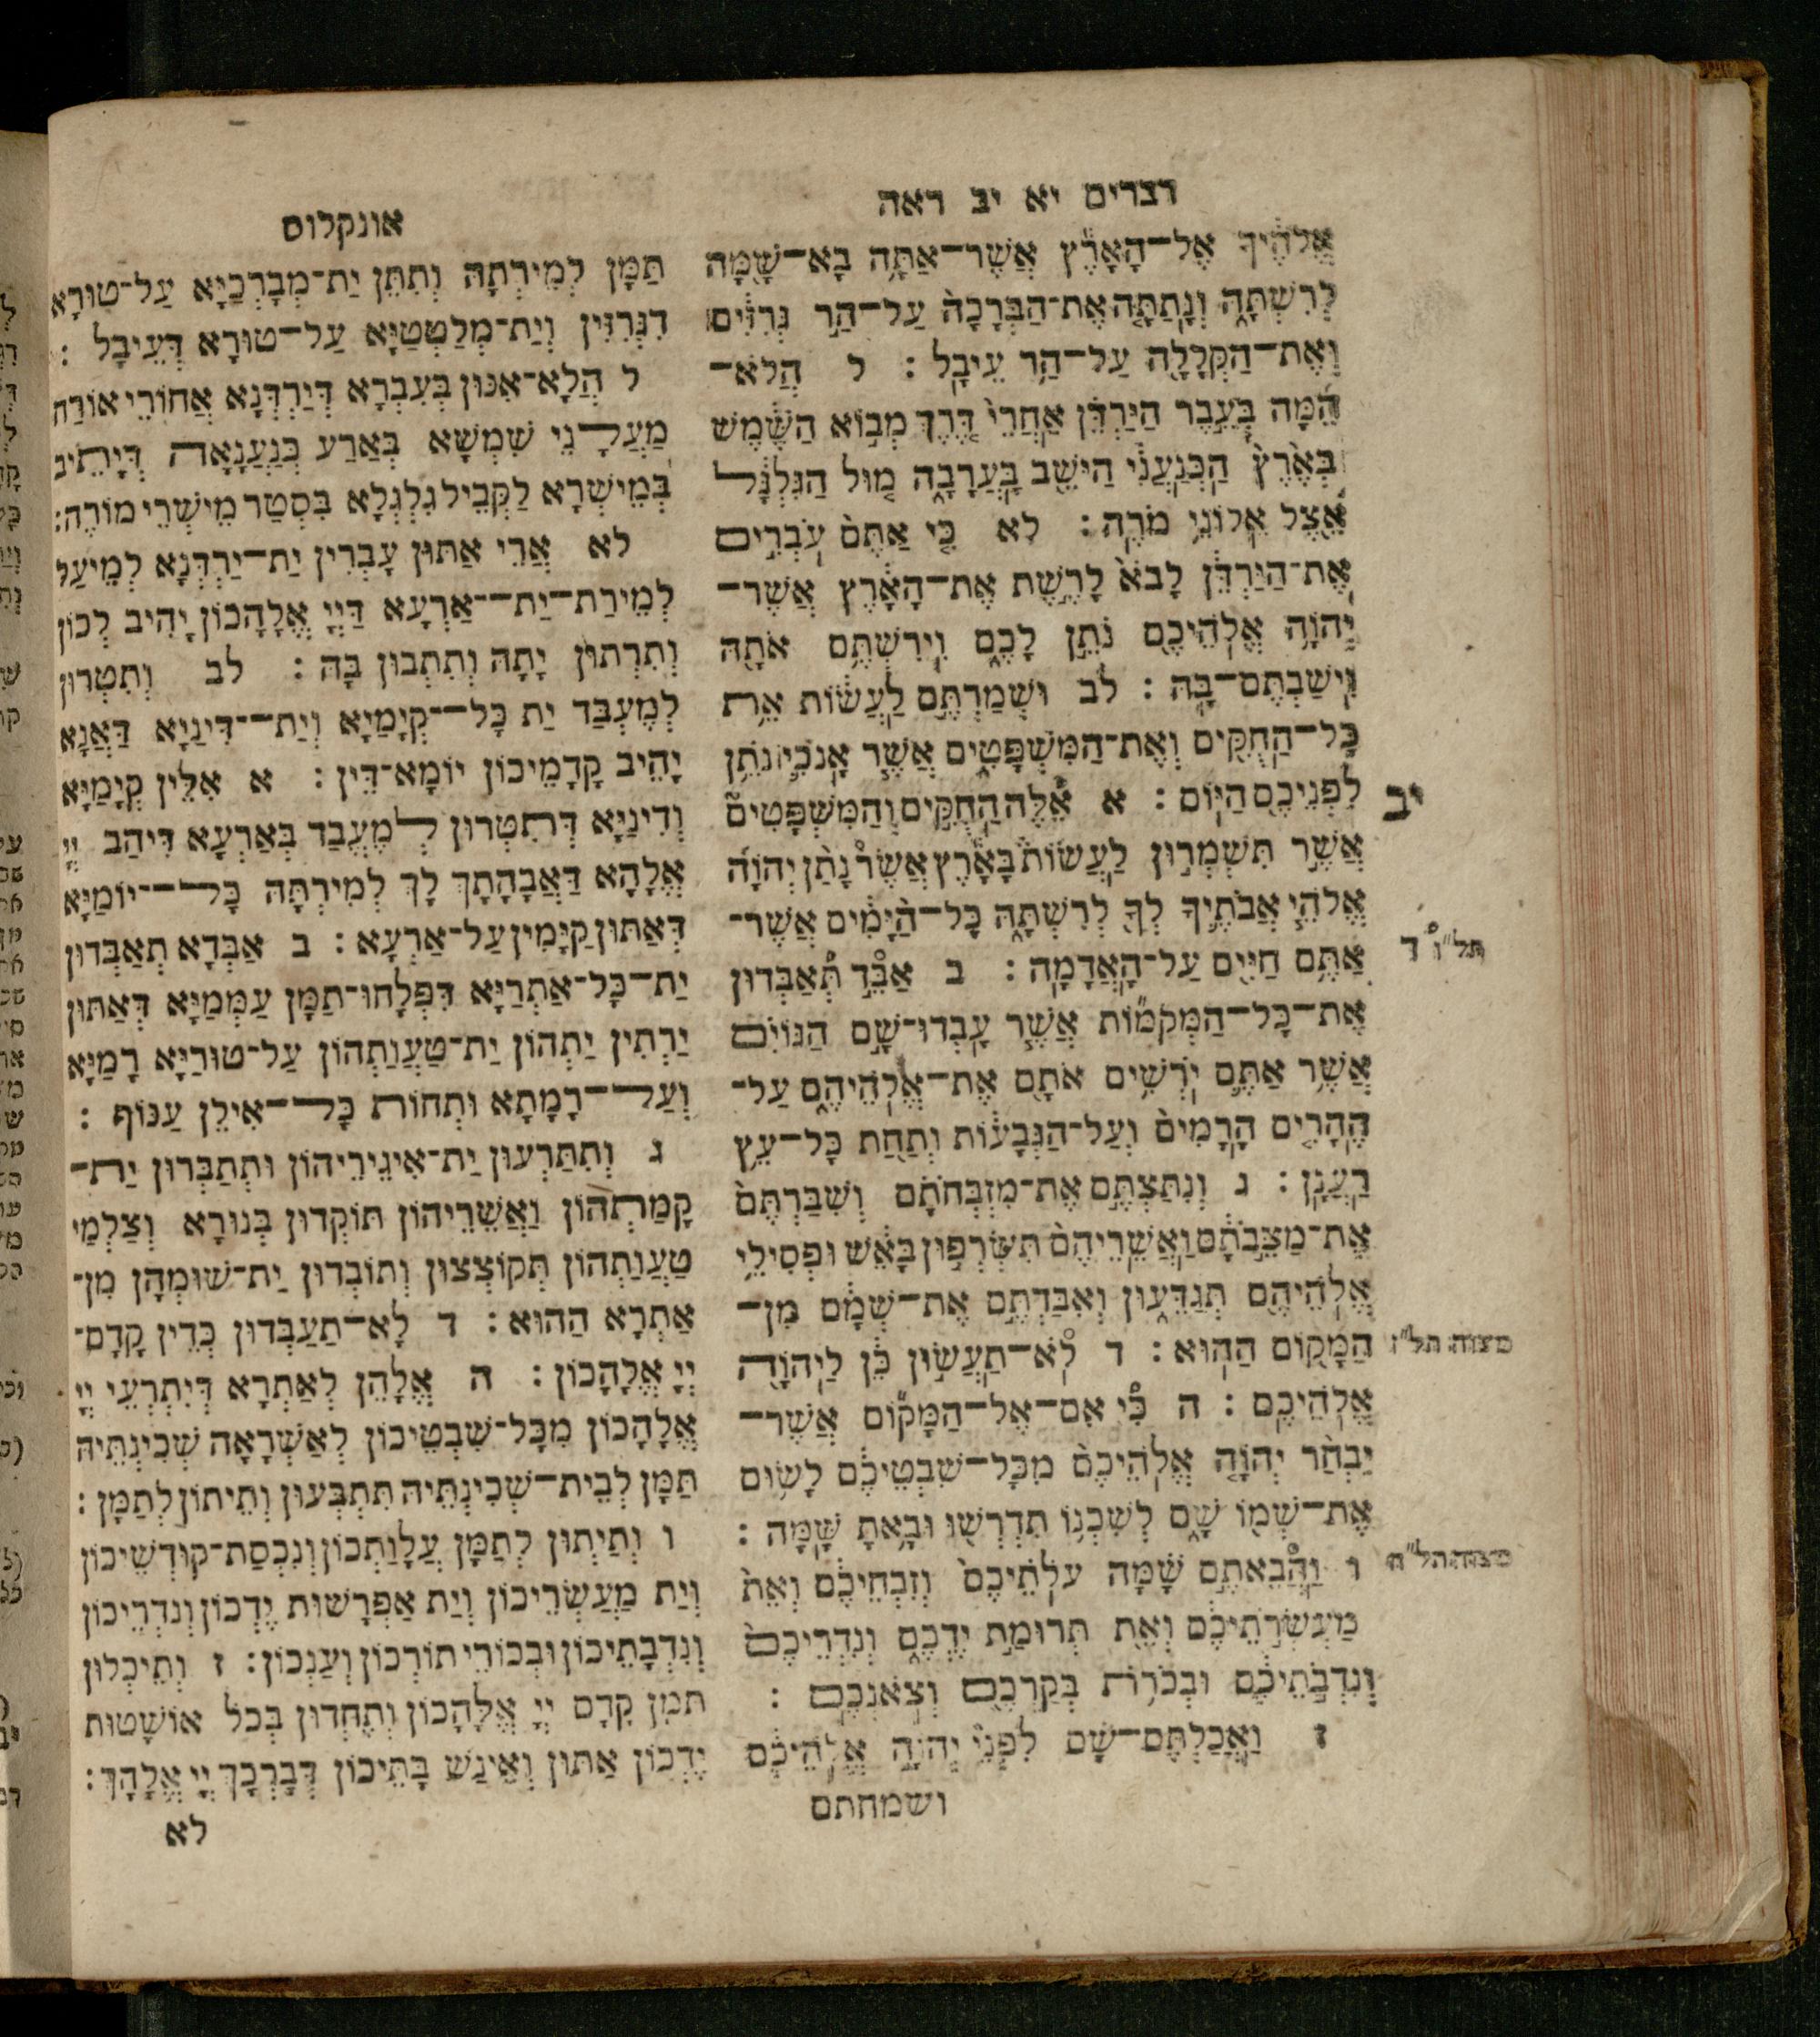 דברים יא יב ראה
אֱלֹהֶ֔יךָ אֶל־הָאָ֕רֶץ אֲשֶׁר־אַתָּ֥ה בָא־שָׁ֖מָּה
לְרִשְׁתָּ֑הּ וְנָתַתָּ֤ה אֶת־הַבְּרָכָה֙ עַל־הַ֣ר גְּרִזִּ֔ים
וְאֶת־הַקְּלָלָ֖ה עַל־הַ֥ר עֵיבָֽל׃ ל הֲלֹא־
הֵ֜מָּה בְּעֵ֣בֶר הַיַּרְדֵּ֗ן אַֽחֲרֵי֙ דֶּ֚רֶךְ מְב֣וֹא הַשֶּׁ֔מֶשׁ
בְּאֶ֙רֶץ֙ הַֽכְּנַֽעֲנִ֔י הַיֹּשֵׁ֖ב בָּֽעֲרָבָ֑ה מ֚וּל הַגִּלְגָּ֔ל
אֵ֖צֶל אֵֽלוֹנֵ֥י מֹרֶֽה׃ לא כִּ֤י אַתֶּם֙ עֹֽבְרִ֣ים
אֶת־הַיַּרְדֵּ֔ן לָבֹא֙ לָרֶ֣שֶׁת אֶת־הָאָ֔רֶץ אֲשֶׁר־
יְהוָֹ֥ה אֱלֹֽהֵיכֶ֖ם נֹתֵ֣ן לָכֶ֑ם וִֽירִשְׁתֶּ֥ם אֹתָ֖הּ
וִֽישַׁבְתֶּם־בָּֽהּ׃ לב וּשְׁמַרְתֶּ֣ם לַֽעֲשׂ֔וֹת אֵ֥ת
כָּל־הַֽחֻקִּ֖ים וְאֶת־הַמִּשְׁפָּטִ֑ים אֲשֶׁ֧ר אָֽנֹכִ֛י נֹתֵ֥ן
לִפְנֵיכֶ֖ם הַיּֽוֹם׃ א אֵ֠לֶּה הַֽחֻקִּ֣ים וְהַמִּשְׁפָּטִים֮
אֲשֶׁ֣ר תִּשְׁמְר֣וּן לַֽעֲשׂוֹת֒ בָּאָ֕רֶץ אֲשֶׁר֩ נָתַ֨ן יְהוָֹ֜ה
אֱלֹהֵ֧י אֲבֹתֶ֛יךָ לְךָ֖ לְרִשְׁתָּ֑הּ כָּל־הַ֨יָּמִ֔ים אֲשֶׁר־
אַתֶּ֥ם חַיִּ֖ים עַל־הָֽאֲדָמָֽה׃ ב אַבֵּ֣ד תְּ֠אַבְּדוּן
אֶת־כָּל־הַמְּקֹמ֞וֹת אֲשֶׁ֧ר עָֽבְדוּ־שָׁ֣ם הַגּוֹיִ֗ם
אֲשֶׁ֥ר אַתֶּ֛ם יֹֽרְשִׁ֥ים אֹתָ֖ם אֶת־אֱלֹֽהֵיהֶ֑ם עַל־
הֶֽהָרִ֤ים הָֽרָמִים֙ וְעַל־הַגְּבָע֔וֹת וְתַ֖חַת כָּל־עֵ֥ץ
רַֽעֲנָֽן׃ ג וְנִתַּצְתֶּ֣ם אֶת־מִזְבְּחֹתָ֗ם וְשִׁבַּרְתֶּם֙
אֶת־מַצֵּ֣בֹתָ֔ם וַאֲשֵֽׁרֵיהֶם֙ תִּשְׂרְפ֣וּן בָּאֵ֔שׁ וּפְסִילֵ֥י
אֱלֹֽהֵיהֶ֖ם תְּגַדֵּע֑וּן וְאִבַּדְתֶּ֣ם אֶת־שְׁמָ֔ם מִן־
הַמָּק֖וֹם הַהֽוּא׃ ד לֹֽא־תַעֲשׂ֣וּן כֵּ֔ן לַֽיהוָֹ֖ה
אֱלֹֽהֵיכֶֽם׃ ה כִּ֠י אִם־אֶל־הַמָּק֞וֹם אֲשֶׁר־
יִבְחַ֨ר יְהוָֹ֤ה אֱלֹֽהֵיכֶם֙ מִכָּל־שִׁבְטֵיכֶ֔ם לָשׂ֥וּם
אֶת־שְׁמ֖וֹ שָׁ֑ם לְשִׁכְנ֥וֹ תִדְרְשׁ֖וּ וּבָ֥אתָ שָּֽׁמָּה׃
ו וַהֲבֵאתֶ֣ם שָׁ֗מָּה עֹלֹֽתֵיכֶם֙ וְזִבְחֵיכֶ֔ם וְאֵת֙
מַעְשְׂרֹ֣תֵיכֶ֔ם וְאֵ֖ת תְּרוּמַ֣ת יֶדְכֶ֑ם וְנִדְרֵיכֶם֙
וְנִדְבֹ֣תֵיכֶ֔ם וּבְכֹרֹ֥ת בְּקַרְכֶ֖ם וְצֹֽאנְכֶֽם׃
ז וַאֲכַלְתֶּם־שָׁ֗ם לִפְנֵי֙ יְהוָֹ֣ה אֱלֹֽהֵיכֶ֔ם
ושמחתם
יב
תל״ו ד
מצוה תל״ז
מצוה תל״ח
אונקלוס
תַּמָּן לְמֵירְתָהּ וְתִתֵּן יַת־מְבָרְכַיָּא עַל־טוּרָא
דִגְרִזִּין וְיַת־מְלַטְטַיָּא עַל־טוּרָא דְּעֵיבָל׃
ל הֲלָא־אִנּוּן בְּעִבְרָא דְּיַרְדְּנָא אֲחוֹרֵי אוֹרַח
מַעֲלָנֵי שִׁמְשָׁא בְּאַרַע כְּנַעֲנָאָה דְּיָתֵיב
בְּמֵישְׁרָא לָקֳבֵיל גִּלְגְּלָא בִּסְטַר מֵישְׁרֵי מוֹרֶה׃
לא אֲרֵי אַתּוּן עָבְרִין יַת־יַרְדְּנָא לְמֵיעַל
לְמֵירַת־יַת־אַרְעָא דַּיְיָ אֱלָהָכוֹן יָהִיב לְכוֹן
וְתִרְתוּן יָתַהּ וְתִתְבוּן בָּהּ׃ לב וְתִטְּרוּן
לְמֶעְבַּד יַת כָּל־קְיָמַיָּא וְיַת־דִּינַיָּא דַּאֲנָא
יָהֵיב קָדָמֵיכוֹן יוֹמָא־דֵין׃ א אִלֵּין קְיָמַיָּא
וְדִינַיָּא דְּתִטְּרוּן לְמֶעֱבַד בְּאַרְעָא דִּיהַב יְיָ
אֱלָהָא דַּאֲבָהָתָךְ לָךְ לְמֵירְתָהּ כָּל־יוֹמַיָּא
דְּאַתּוּן קַיָּמִין עַל־אַרְעָא׃ ב אַבָּדָא תְאַבְּדוּן
יַת־כָּל־אַתְרַיָּא דִּפְלָחוּ־תַמָּן עַמְמַיָּא דְּאַתּוּן
יַרְתִין יַתְהוֹן יַת־טַעֲוַתְהוֹן עַל־טוּרַיָּא רָמַיָּא
וְעַל־רָמָתָא וּתְחוֹת כָּל־אִילַן עַבּוֹף׃
ג וְתִתַּרְעוּן יַת־אֵיגוֹרֵיהוֹן וּתְתַבְּרוּן יַת־
קָמַתְהוֹן וַאֲשֵׁרֵיהוֹן תּוֹקְדוּן בְּנוּרָא וְצַלְמֵי
טַעֲוַתְהוֹן תְּקוֹצְצוּן וְתוֹבְדוּן יַת־שׁוּמְהָן מִן־
אַתְרָא הַהוּא׃ ד לָא־תַעַבְּדוּן כְּדֵין קֳדָם־
יְיָ אֱלָהָכוֹן׃ ה אֱלָהֵן לְאַתְרָא דְּיִתְרְעֵי יְיָ
אֱלָהָכוֹן מִכָּל־שִׁבְטֵיכוֹן לְאַשְׁרָאָה שְׁכִינְתֵּיהּ
תַּמָּן לְבֵית־שְׁכִינְתֵּיהּ תִּתְבְּעוּן וְתֵיתוֹן לְתַמָּן׃
ו וְתַיְתוּן לְתַמָּן עֲלָוַתְכוֹן וְנִכְסַת־קוּדְשֵׁיכוֹן
וְיַת מַעַשְׂרֵיכוֹן וְיַת אַפְרָשׁוּת יֶדְכוֹן וְנִדְרֵיכוֹן
וְנִדְבָתֵיכוֹן וּבְכוֹרֵי תוֹרְכוֹן וְעַנְכוֹן׃ ז וְתֵיכְלוּן
תַּמָּן קֳדָם יְיָ אֱלָהָכוֹן וְתֶחְדוּן בְּכֹל אוֹשָׁטוּת
יֶדְכוֹן אַתּוּן וְאֵינַשׁ בָּתֵּיכוֹן דְּבָרְכָךְ יְיָ אֱלָהָךְ׃
לא